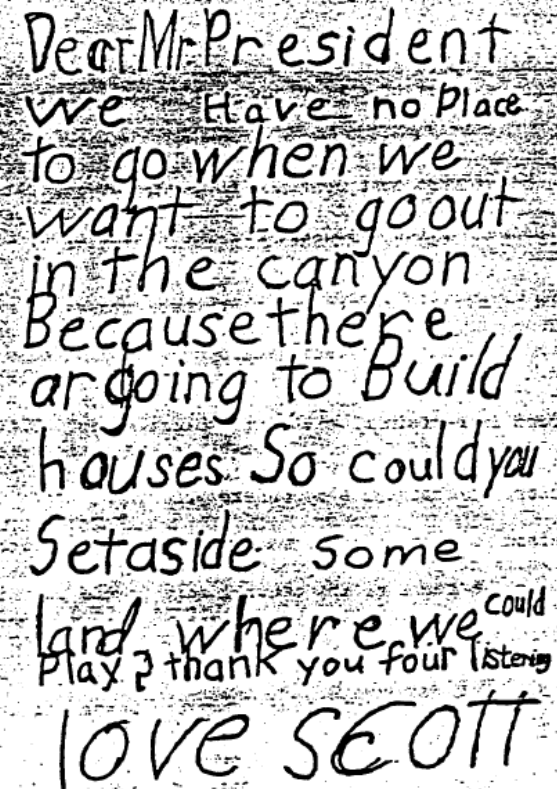 Dear Mr. President
we Have no Place
to go when we
want to go out
in the canyon
Because there
ar going to Build
houses So could you
Setaside some
land where we could
Play? thank you four listening
love SCOTT